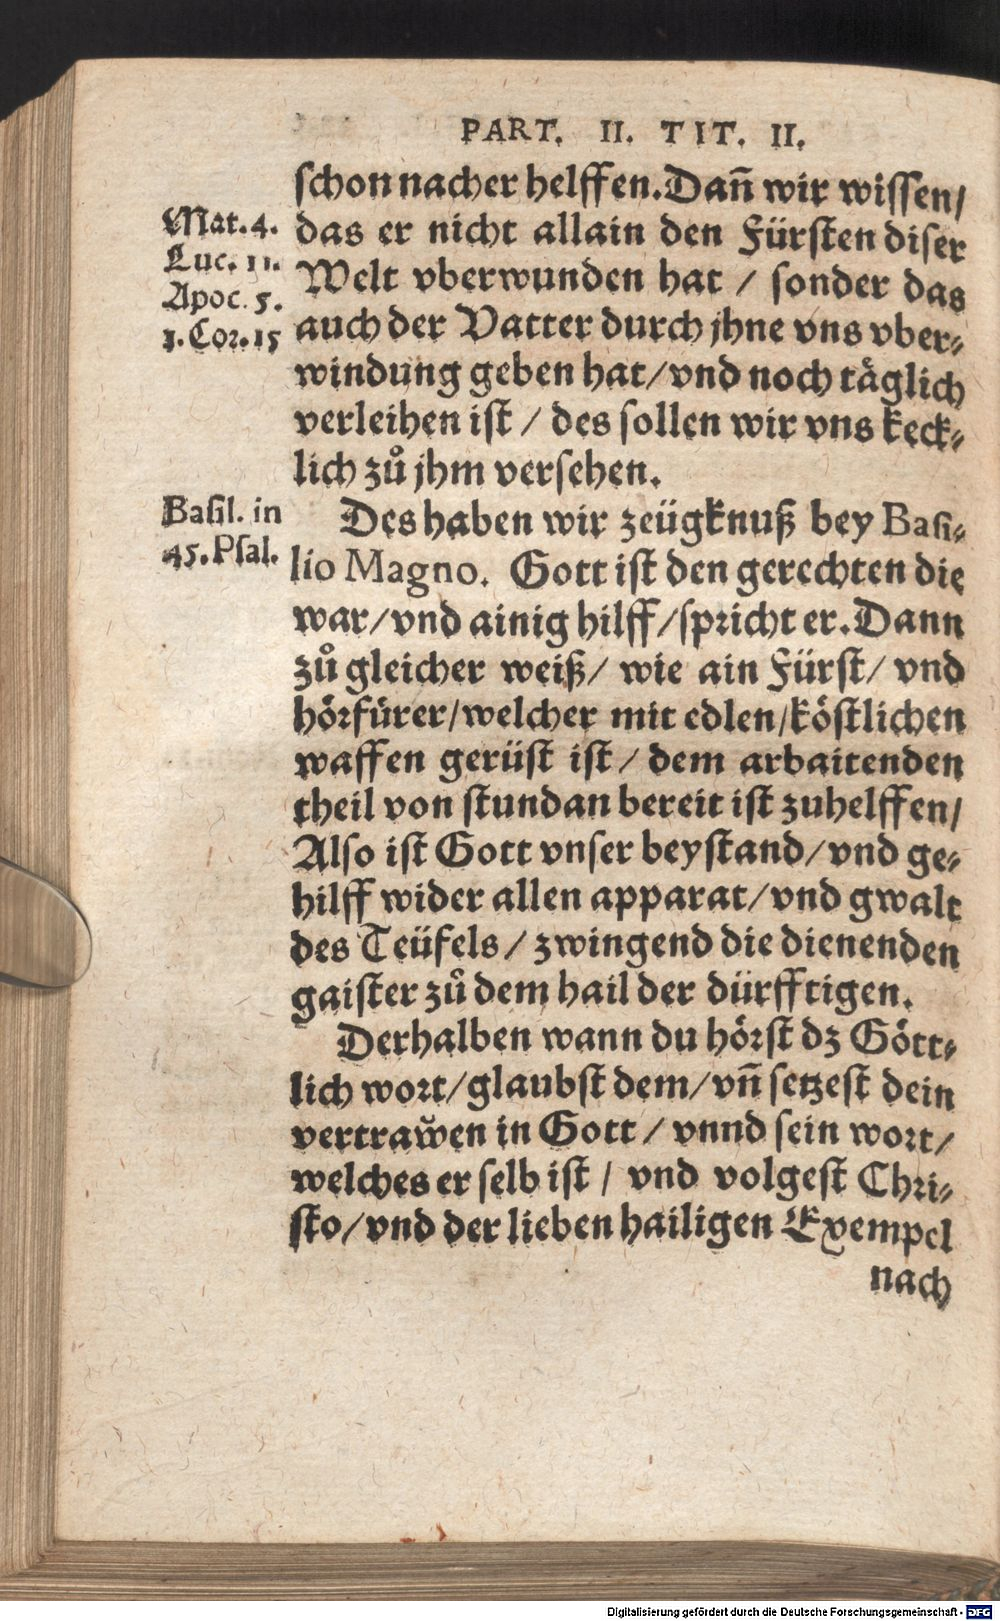 PART. II. TIT. II.
schon nacher helffen. Dañ wir wissen/
Mat. 4.
Luc. 11.
Apoc. 5.
1. Cor. 15
das er nicht allain den Fürsten diser
Welt vberwunden hat / sonder das
auch der Vatter durch jhne vns vber-
windung geben hat/vnd noch täglich
verleihen ist / des sollen wir vns keck-
lich zů jhm versehen.
Basil. in
45. Psal.
Des haben wir zeügknuß bey Basi-
lio Magno. Gott ist den gerechten die
war/vnd ainig hilff/spricht er. Dann
zů gleicher weiß/ wie ain Fürst/ vnd
hörfürer/welcher mit edlen/köstlichen
waffen gerüst ist / dem arbaitenden
theil von stundan bereit ist zuhelffen/
Also ist Gott vnser beystand/vnd ge-
hilff wider allen apparat/vnd gwalt
des Teüfels / zwingend die dienenden
gaister zů dem hail der dürfftigen.
Derhalben wann du hörst dz Gött-
lich wort/glaubst dem/vñ setzest dein
vertrawen in Gott / vnnd sein wort/
welches er selb ist / vnd volgest Chri-
sto/vnd der lieben hailigen Exempel
nach
Digitalisierung gefördert durch die Deutsche Forschungsgemeinschaft - DFG